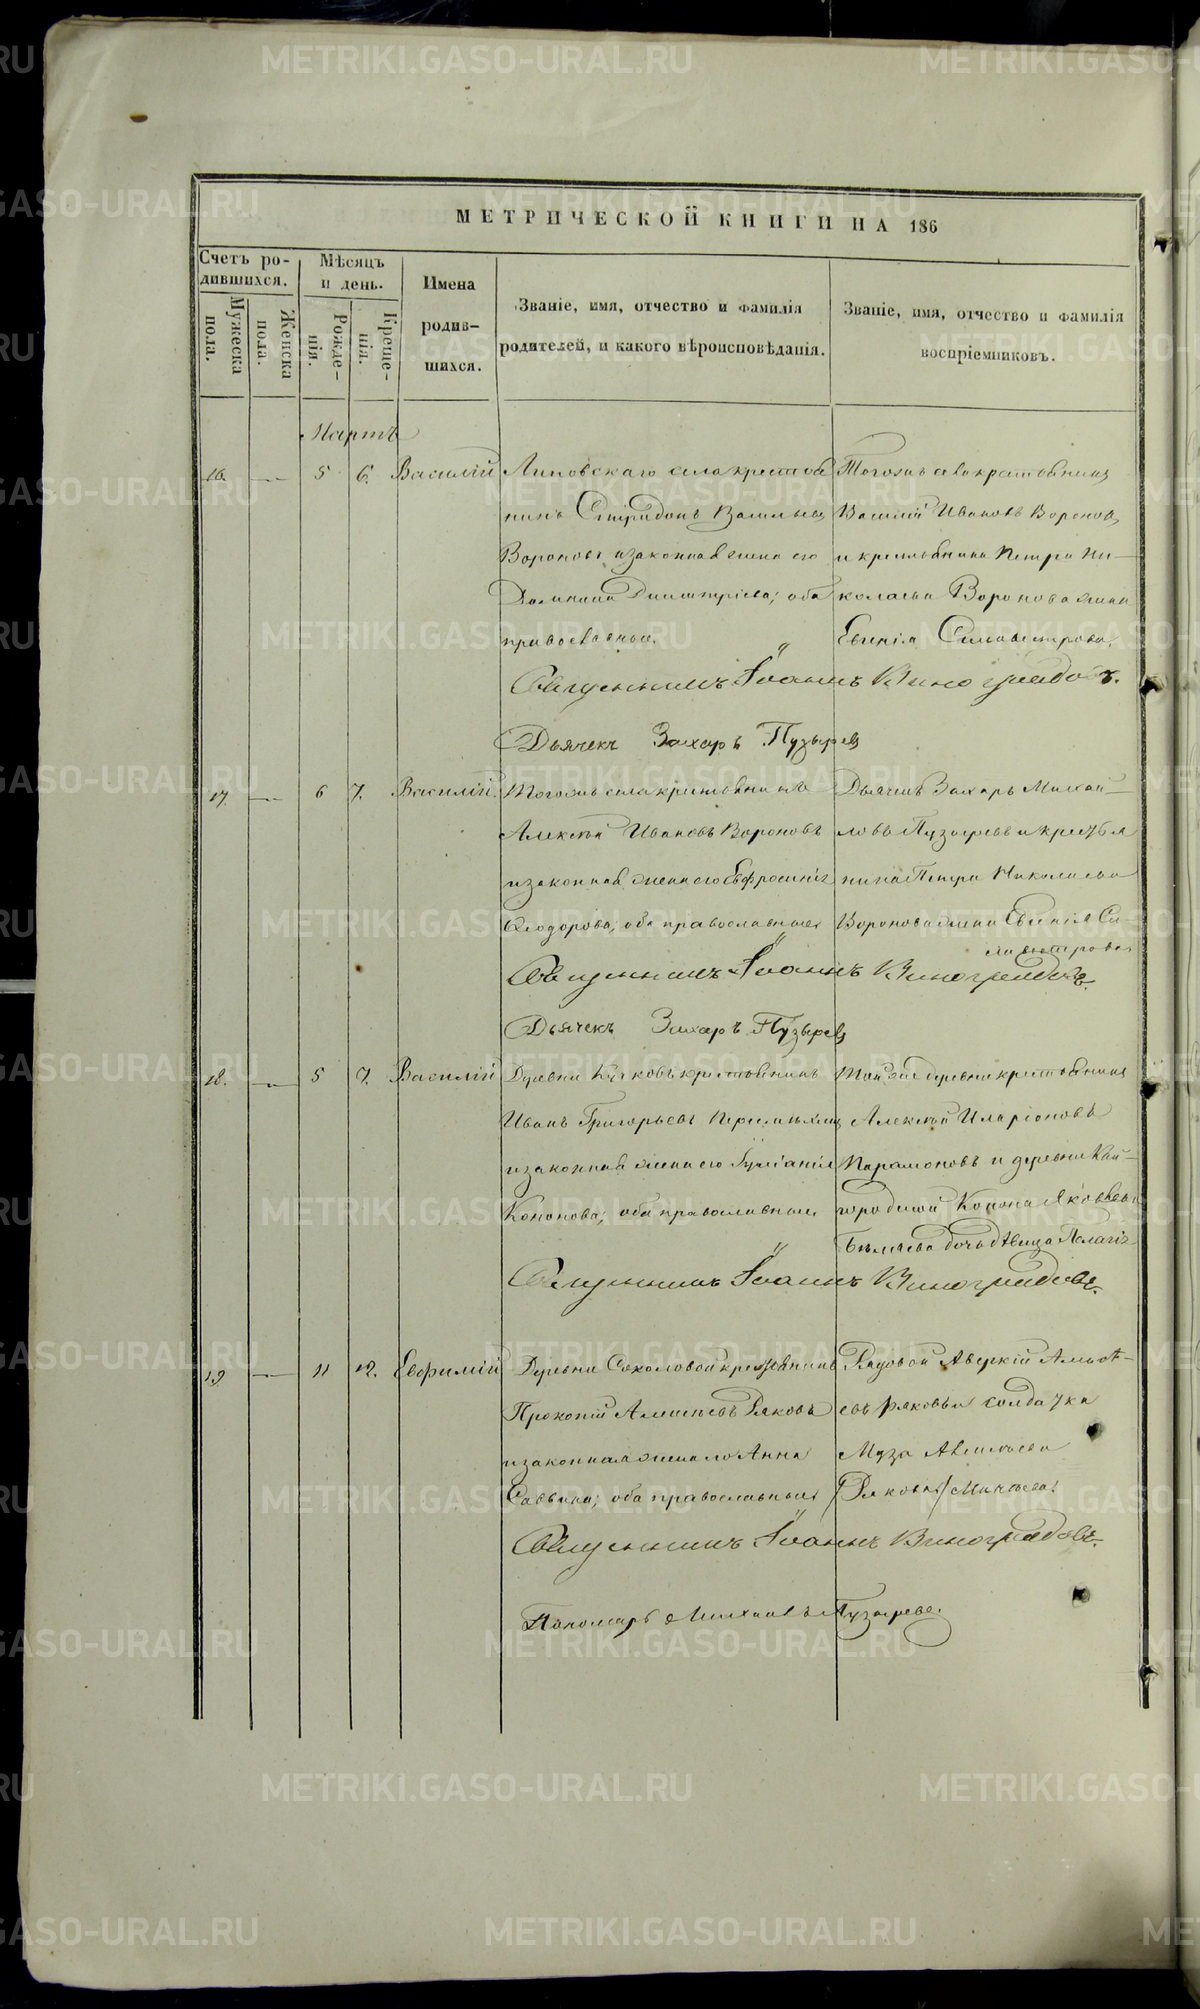 МЕТРИЧЕСКОЙ КНИГИ НА 186
Счетъ ро-
дившихся.
Мужеска
пола.
Женска
пола.
Мѣсяцъ
и день.
Рожде-
нія.
Креще-
нія.
Имена
родив-
шихся.
Званіе, имя, отчество и фамилія
родителей, и какого вѣроисповѣданія.
Званіе, имя, отчество и фамилія
воспріемниковъ.
Мартъ
16. — 5 6. Василій
Липовскаго села крестья
нинъ Спиридонъ Васильевъ
Вороновъ и законная жена его
Димитріева; оба
православные.
Тогожъ села крестьянинъ
Василій Ивановъ Вороновъ
и крестьянина Петра Ни-
колаева Воронова жена
Евгенія Сильвестрова.
Священникъ Іоаннъ Виноградовъ.
Дьячекъ Захаръ Пузыревъ
17. — 6 7. Василій.
Тогожъ села крестьянинъ
Алексѣй Ивановъ Вороновъ
и законная жена его Евфросинія
Ѳеодорова, оба православные
Дьячекъ Захаръ Михай-
ловъ Пузыревъ и крестья
нина Петра Николаева
Воронова жена Евгенія Си-
львестрова
Священникъ Іоаннъ Виноградовъ.
Дьячекъ Захаръ Пузыревъ
18. — 5 7. Василій
Деревни крестьянинъ
Иванъ Григорьевъ
и законная жена его
Кононова; оба православные
Той же деревни крестьянинъ
Алексѣй Иларіоновъ
Парамоновъ и деревни Кай-
городской Конона Яковлева
дочь дѣвица Пелагія
Священникъ Іоаннъ Виноградовъ.
19 — 11 12. Евфимій
Деревни Соколовой крестьянинъ
Прокопій Алексѣевъ Ряковъ
и законная жена его Анна
Саввина; оба православные
Рядовой Аверкій Алексѣ-
евъ Ряковъ и солдатка
Муза Алексѣева
Рякова /Минѣева/
Священникъ Іоаннъ Виноградовъ.
Пономарь Михаилъ Пузыревъ.
METRIKI.GASO-URAL.RU